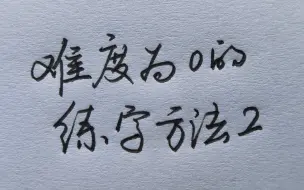 难度为0的
练字方法2